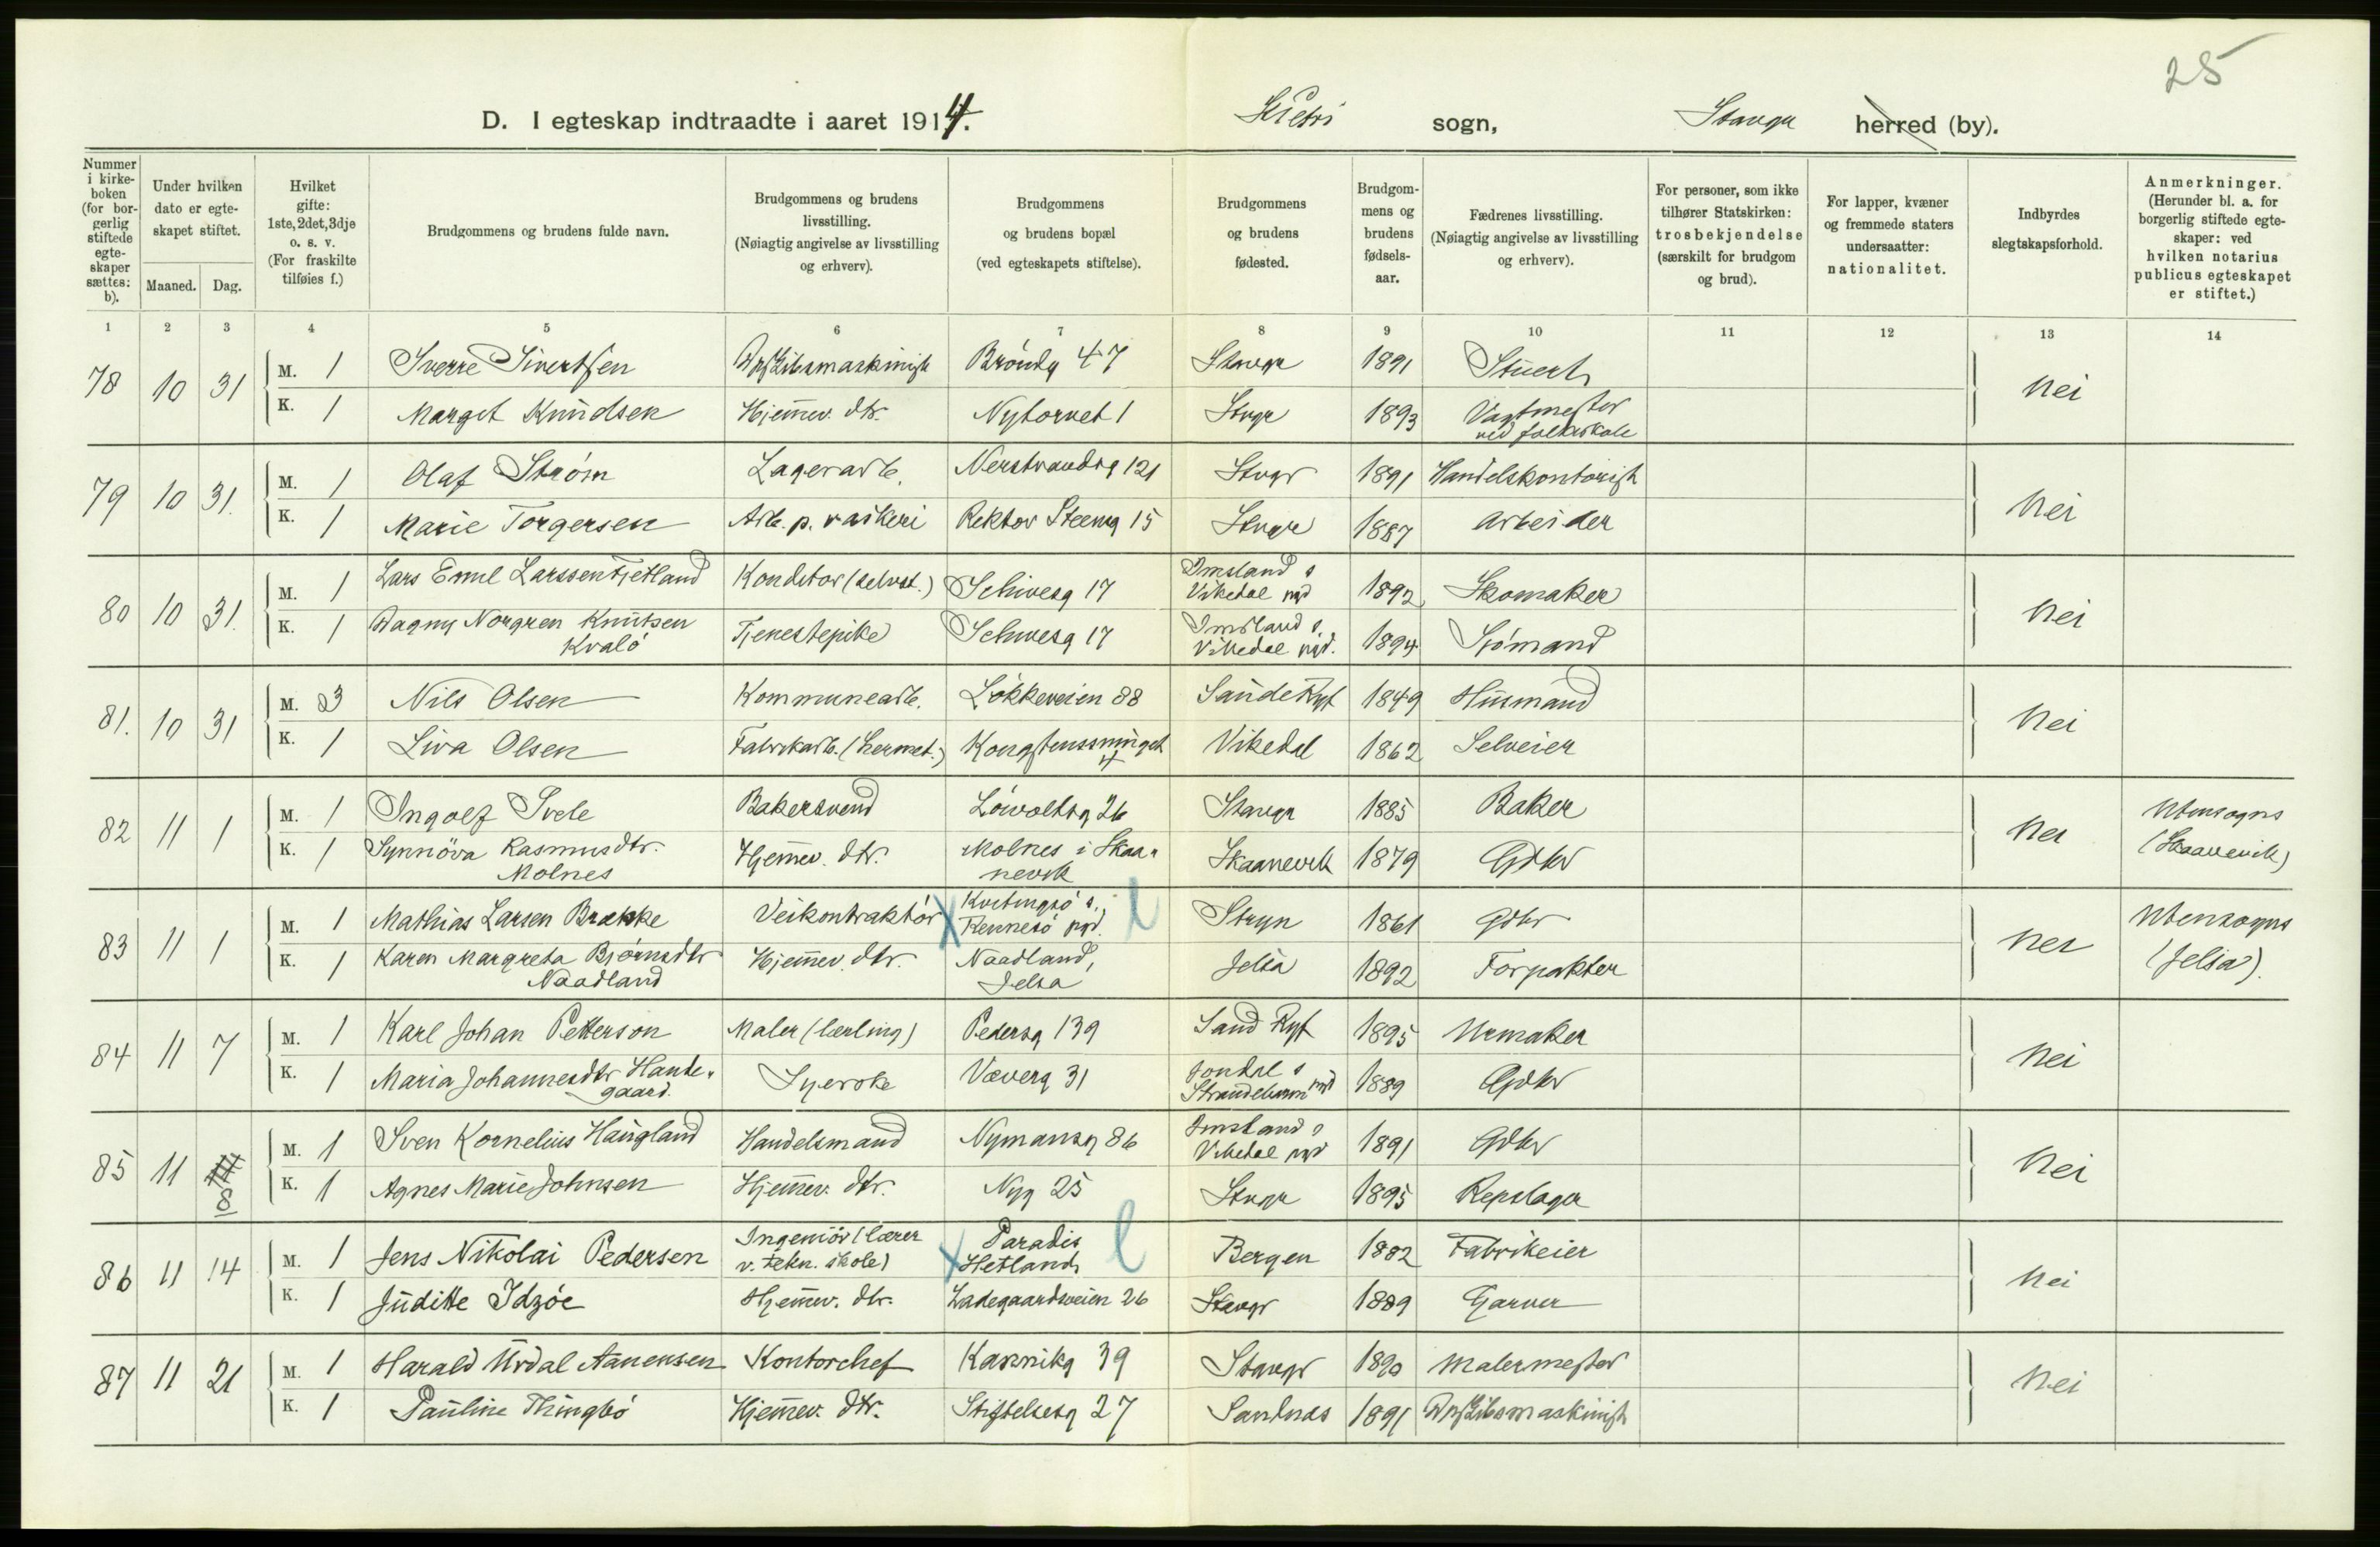 25
D. I egteskap indtraadte i aaret 1914. St Petri sogn, Stavgr herred (by).
Nummer i kirkeboken (for borgerlig stiftede egteskaper sættes: b).
Under hvilken dato er egteskapet stiftet.
Maaned. Dag.
Hvilket gifte: 1ste, 2det, 3dje o. s. v. (For fraskilte tilføies f.)
Brudgommens og brudens fulde navn.
Brudgommens og brudens livsstilling. (Nøiagtig angivelse av livsstilling og erhverv).
Brudgommens og brudens bopæl (ved egteskapets stiftelse).
Brudgommens og brudens fødested.
Brudgommens og brudens fødselsaar.
Fædrenes livsstilling. (Nøiagtig angivelse av livsstilling og erhverv).
For personer, som ikke tilhører Statskirken: trosbekjendelse (særskilt for brudgom og brud).
For lapper, kvæner og fremmede staters undersaatter: nationalitet.
Indbyrdes slegtskapsforhold.
Anmerkninger. (Herunder bl. a. for borgerlig stiftede egteskaper: ved hvilken notarius publicus egteskapet er stiftet.)
1 2 3 4 5 6 7 8 9 10 11 12 13 14
78 10 31 M. 1 Sverre Sivertsen Brøndg 47 Stavgr 1891 Stuert nei
K. 1 Marget Knudsen Hjemmev. dtr. Nytorvet 1 Stvgr 1893 Vagtmester ved folkeskole
79 10 31. M. 1 Olaf Strøm Lagerarb. Nerstrandsg 121 Stvgr 1891 Handelskontorist nei
K. 1 Marie Torgersen Arb. p. vaskeri Rektor Steensg 15 Stvgr 1887 Arbeider
80 10 31. M. 1 Lars Emil Larssen Tjetland Konditor (selvst.) Schivesg 17 Imsland s Vikedal pgd 1892 Skomaker nei
K. 1 Dagny Norgren Knutsen Kvalö Tjenestepike Schivesg 17 Imsland s Vikedal pgd. 1894 Sjömand
81. 10 31 M. 3 Nils Olsen Kommunearb. Lökkeveien 88 Sande Ryf 1849 Husmand nei
K. 1 Liva Olsen Fabrikarb. (hermet.) 4 Vikedal 1862 Selveier
82 11 1 M. 1 Ingolf Svele Bakersvend Löwoldsg 26 Stavgr 1885 Baker nei Utensogns
K. 1 Synnöva Rasmusdtr. Molnes Hjemmev. dtr. Molnes i Skaanevik Skaanevik 1879 Gdbr (Skaanevik)
83 11 1 M. 1 Mathias Larsen Brække Veikontraktör Kvitingsö s. Rennesö pgd. Stryn 1861 Gdbr nei Utensogns
K. 1 Karen Margreta Björnsdtr Naadland Hjemmev. dtr. Naadland, Jelsa Jelsa 1892 Forpakter (Jelsa).
84 11 7 M. 1 Karl Johan Petterson Maler (lærling) Pedersg 139 Sand Ryf 1895 Urmaker nei
K. 1 Maria Johannesdtr Handegaard. Syerske Væverg 31 Jondal s Strandebarm pgd 1889 Gdbr
85 11 8 M. 1 Sven Kornelius Haugland Handelsmand Nymansg 86 Imsland s Vikedal pgd 1891 Gdbr nei
K. 1 Agnes Marie Johnsen Hjemmev. dtr. Nyg 25 Stvgr 1895 Repslager
86 11 14 M. 1 Jens Nikolai Pedersen Ingeniör (lærer v. tekn. skole) Paradis Hetland Bergen 1882 Fabrikeier nei
K. 1 Juditte Idzöe Hjemmev. dtr. Ladegaardsveien 26 Stavgr 1889 Garver
87 11 21 M. 1 Harald Urdal Aanensen Kontorchef Kannikg 39 Stavgr 1890 Malermester nei
K. 1 Pauline Thingbö Hjemmev. dtr. Stiftelsesg 27 Sandnes 1891